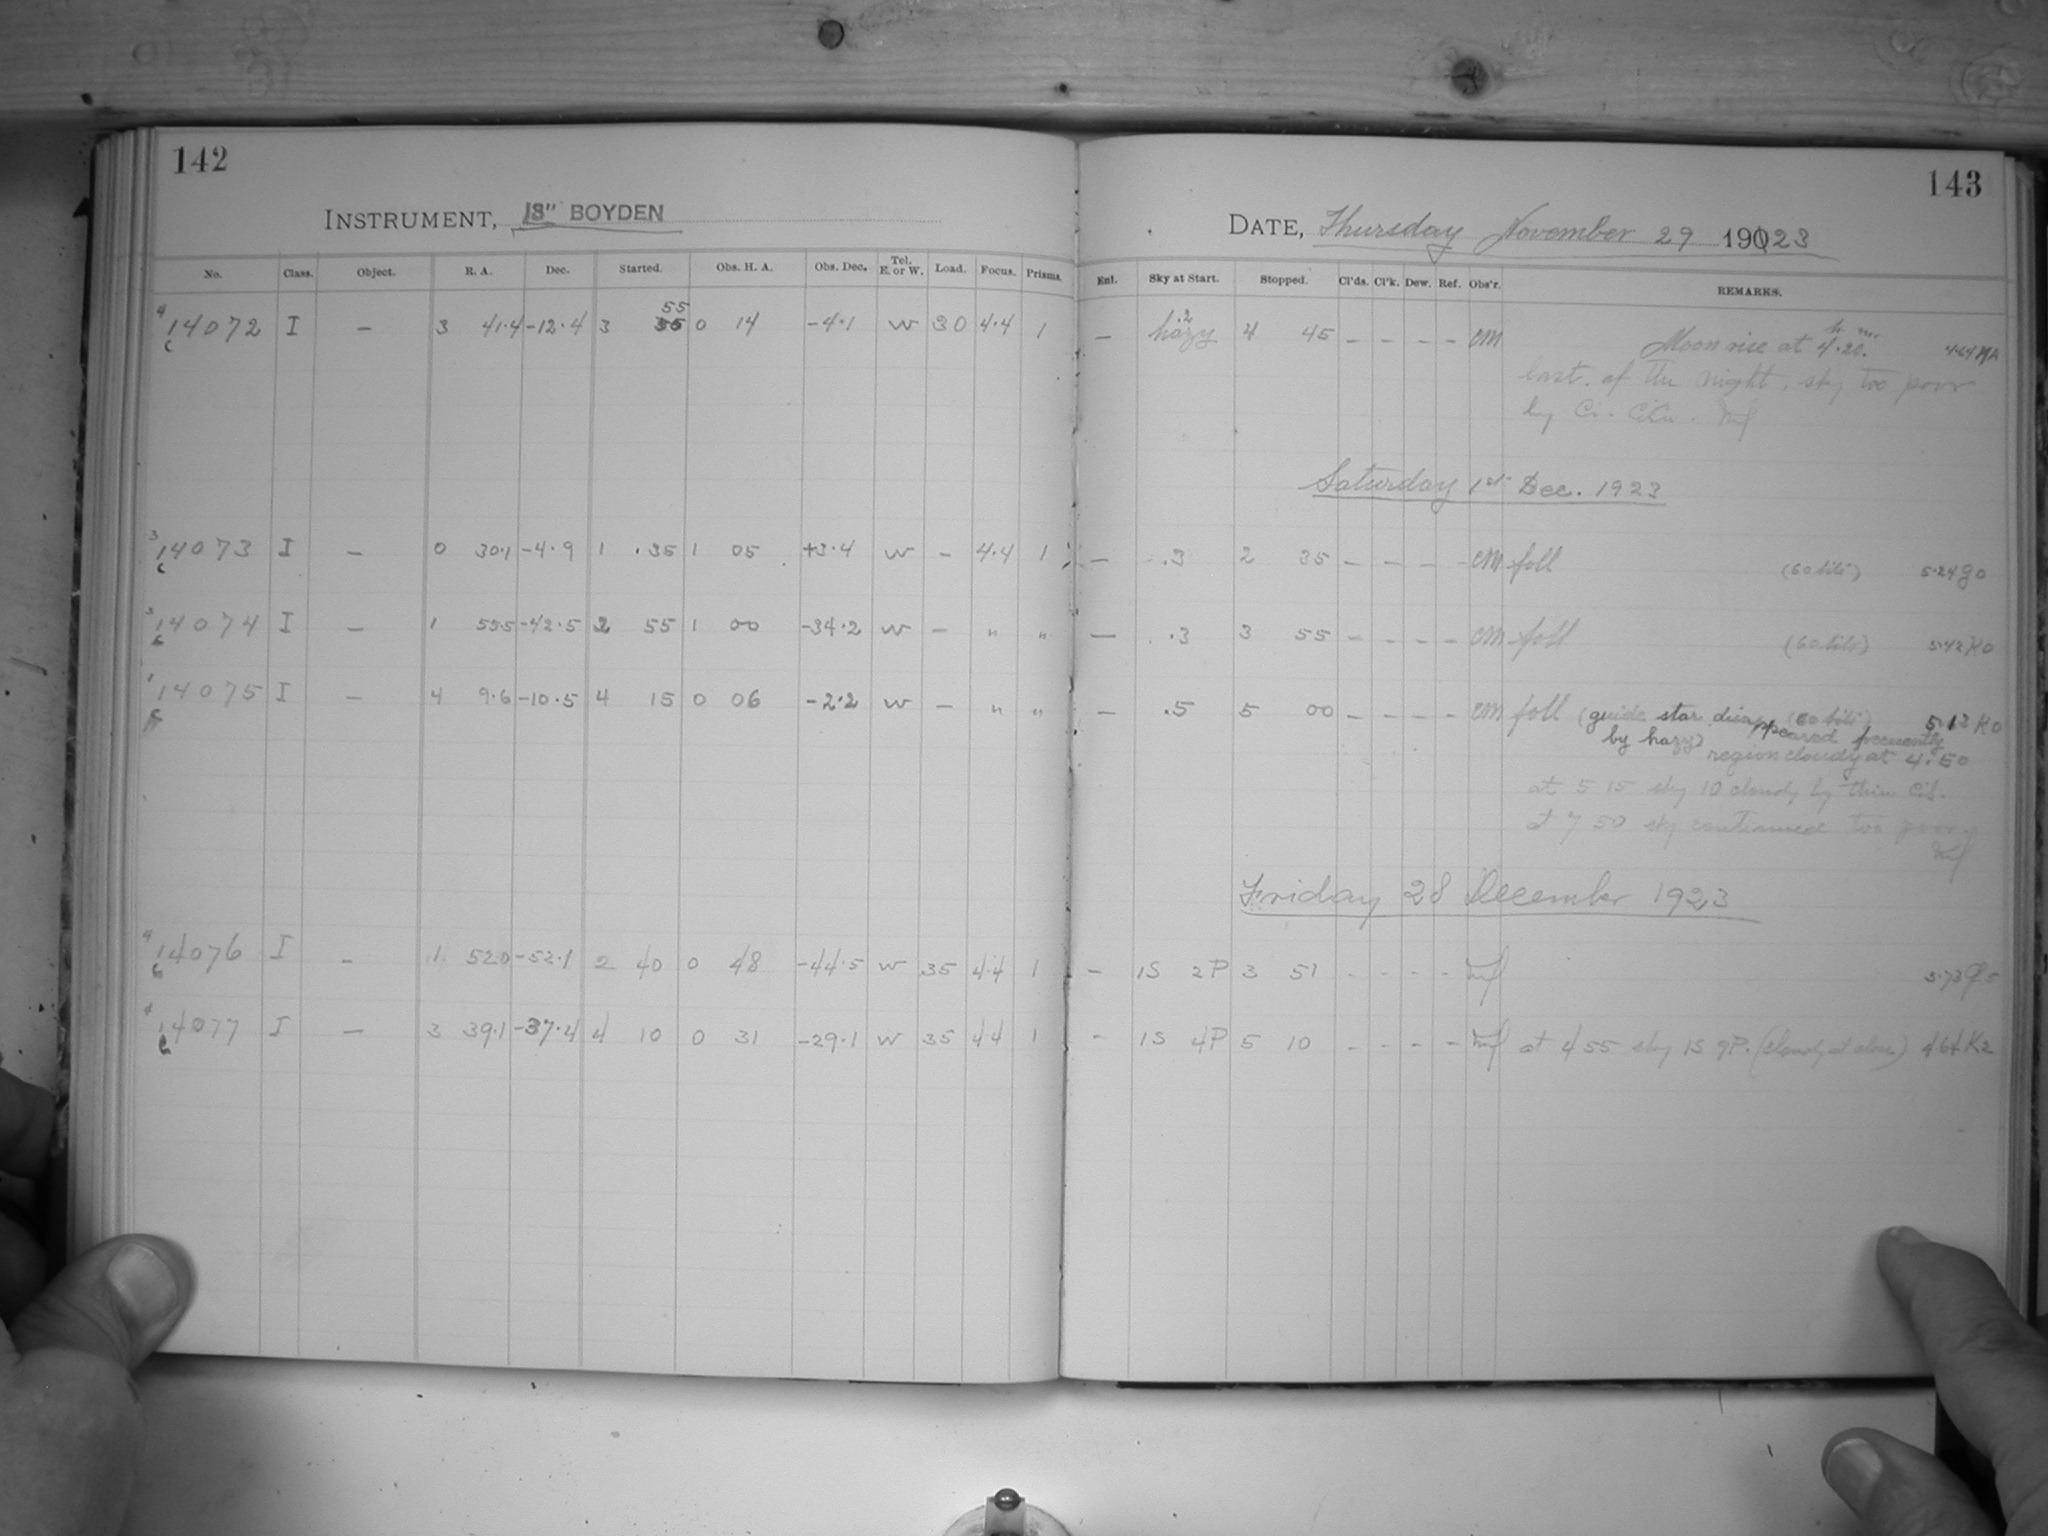 142
143
INSTRUMENT, 13" BOYDEN
DATE, Thursday November 29 1923
No. Class. Object. R. A. Dec. Started. Obs. H. A. Obs. Dec. Tel. E. or W. Load. Focus. Prisms. Enl. Sky at Start. Stopped. Cl'ds. Cl'k. Dew. Ref. Obs'r. REMARKS.
14072 I – 3 41.4 -12.4 3 55 0 14 -4.1 W 30 4.4 1 – .2 hazy 4 45 – – – – CM Moon rise at 4h 20m.
last. of the night. sky too poor
by Ci.
Saturday 1st Dec. 1923
14073 I – 0 30.1 -4.9 1 .35 1 05 +3.4 W – 4.4 1 – .3 2 35 – – – – CM foll 5.24 g0
14074 I – 1 55.5 -42.5 2 55 1 00 -34.2 W – " " – .3 3 55 – – – – CM foll 5.42 K0
14075 I – 4 9.6 -10.5 4 15 0 06 -2.2 W – " " – .5 5 00 – – – – CM foll (guide star disappeared frecuently 5.13 K0
by hazy) region cloudy at 4.50
at 5 15 sky 10 cloudy by thin
at 7 50 sky continued too poor
Friday 28 December 1923
14076 I – 1 52.0 -52.1 2 40 0 48 -44.5 W 35 4.4 1 – 1S 2P 3 51 – – – –
14077 I – 3 39.1 -37.4 4 10 0 31 -29.1 W 35 4.4 1 – 1S 4P 5 10 – – – – at 4 55 sky 1S 9P. (cloudy at close) 4.64 K2